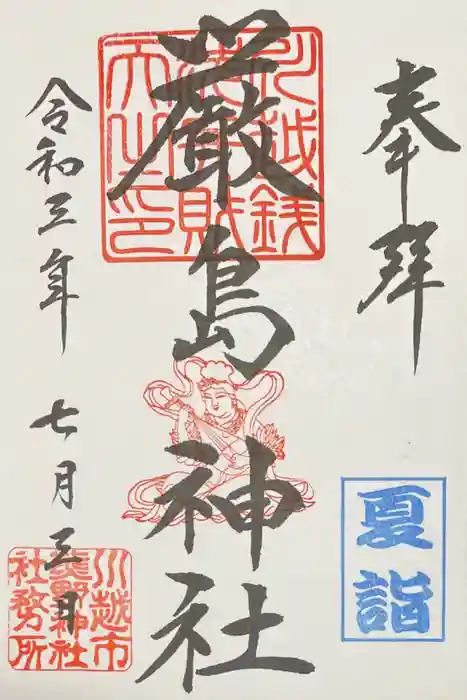 奉拝
夏詣
厳島神社
川越銭
洗弁財
天之印
令和三年 七月三日
川越市
熊野神社
社務所